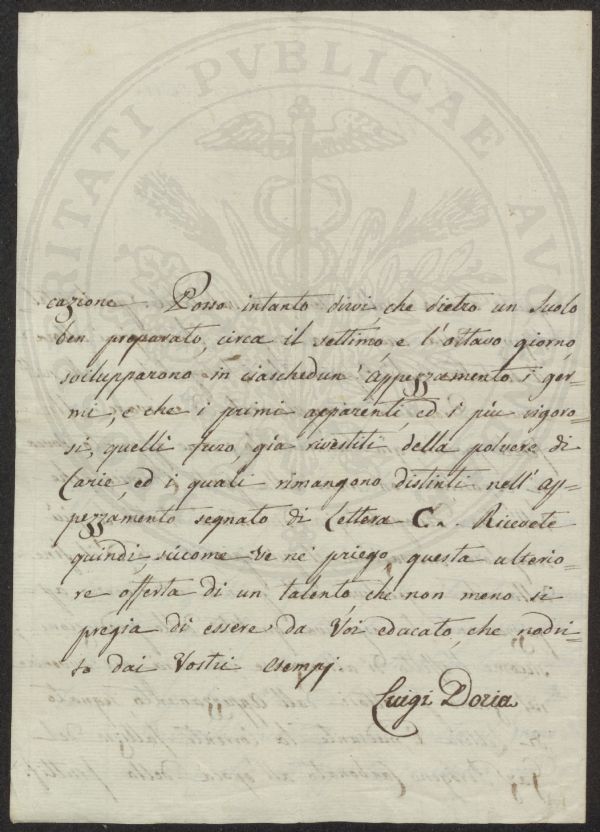 RITATI PVBLICAE AV
cazione. Posso intanto dirvi che dietro un suolo
ben preparato, circa il settimo e l'ottavo giorno
svilupparono in ciaschedun' appezzamento i ger=
mi, e che i primi apparenti, ed i piu vigoro=
si, quelli furo, già rivestiti della polvere di
Carie, ed i quali rimangono distinti nell' ap=
pezzamento segnato di Lettera C. Ricevete
quindi, siccome ve ne priego, questa ulterio=
re offerta di un talento, che non meno si
pregia di essere da Voi educato, che nodri=
to dai Vostri esempj.
Luigi Doria